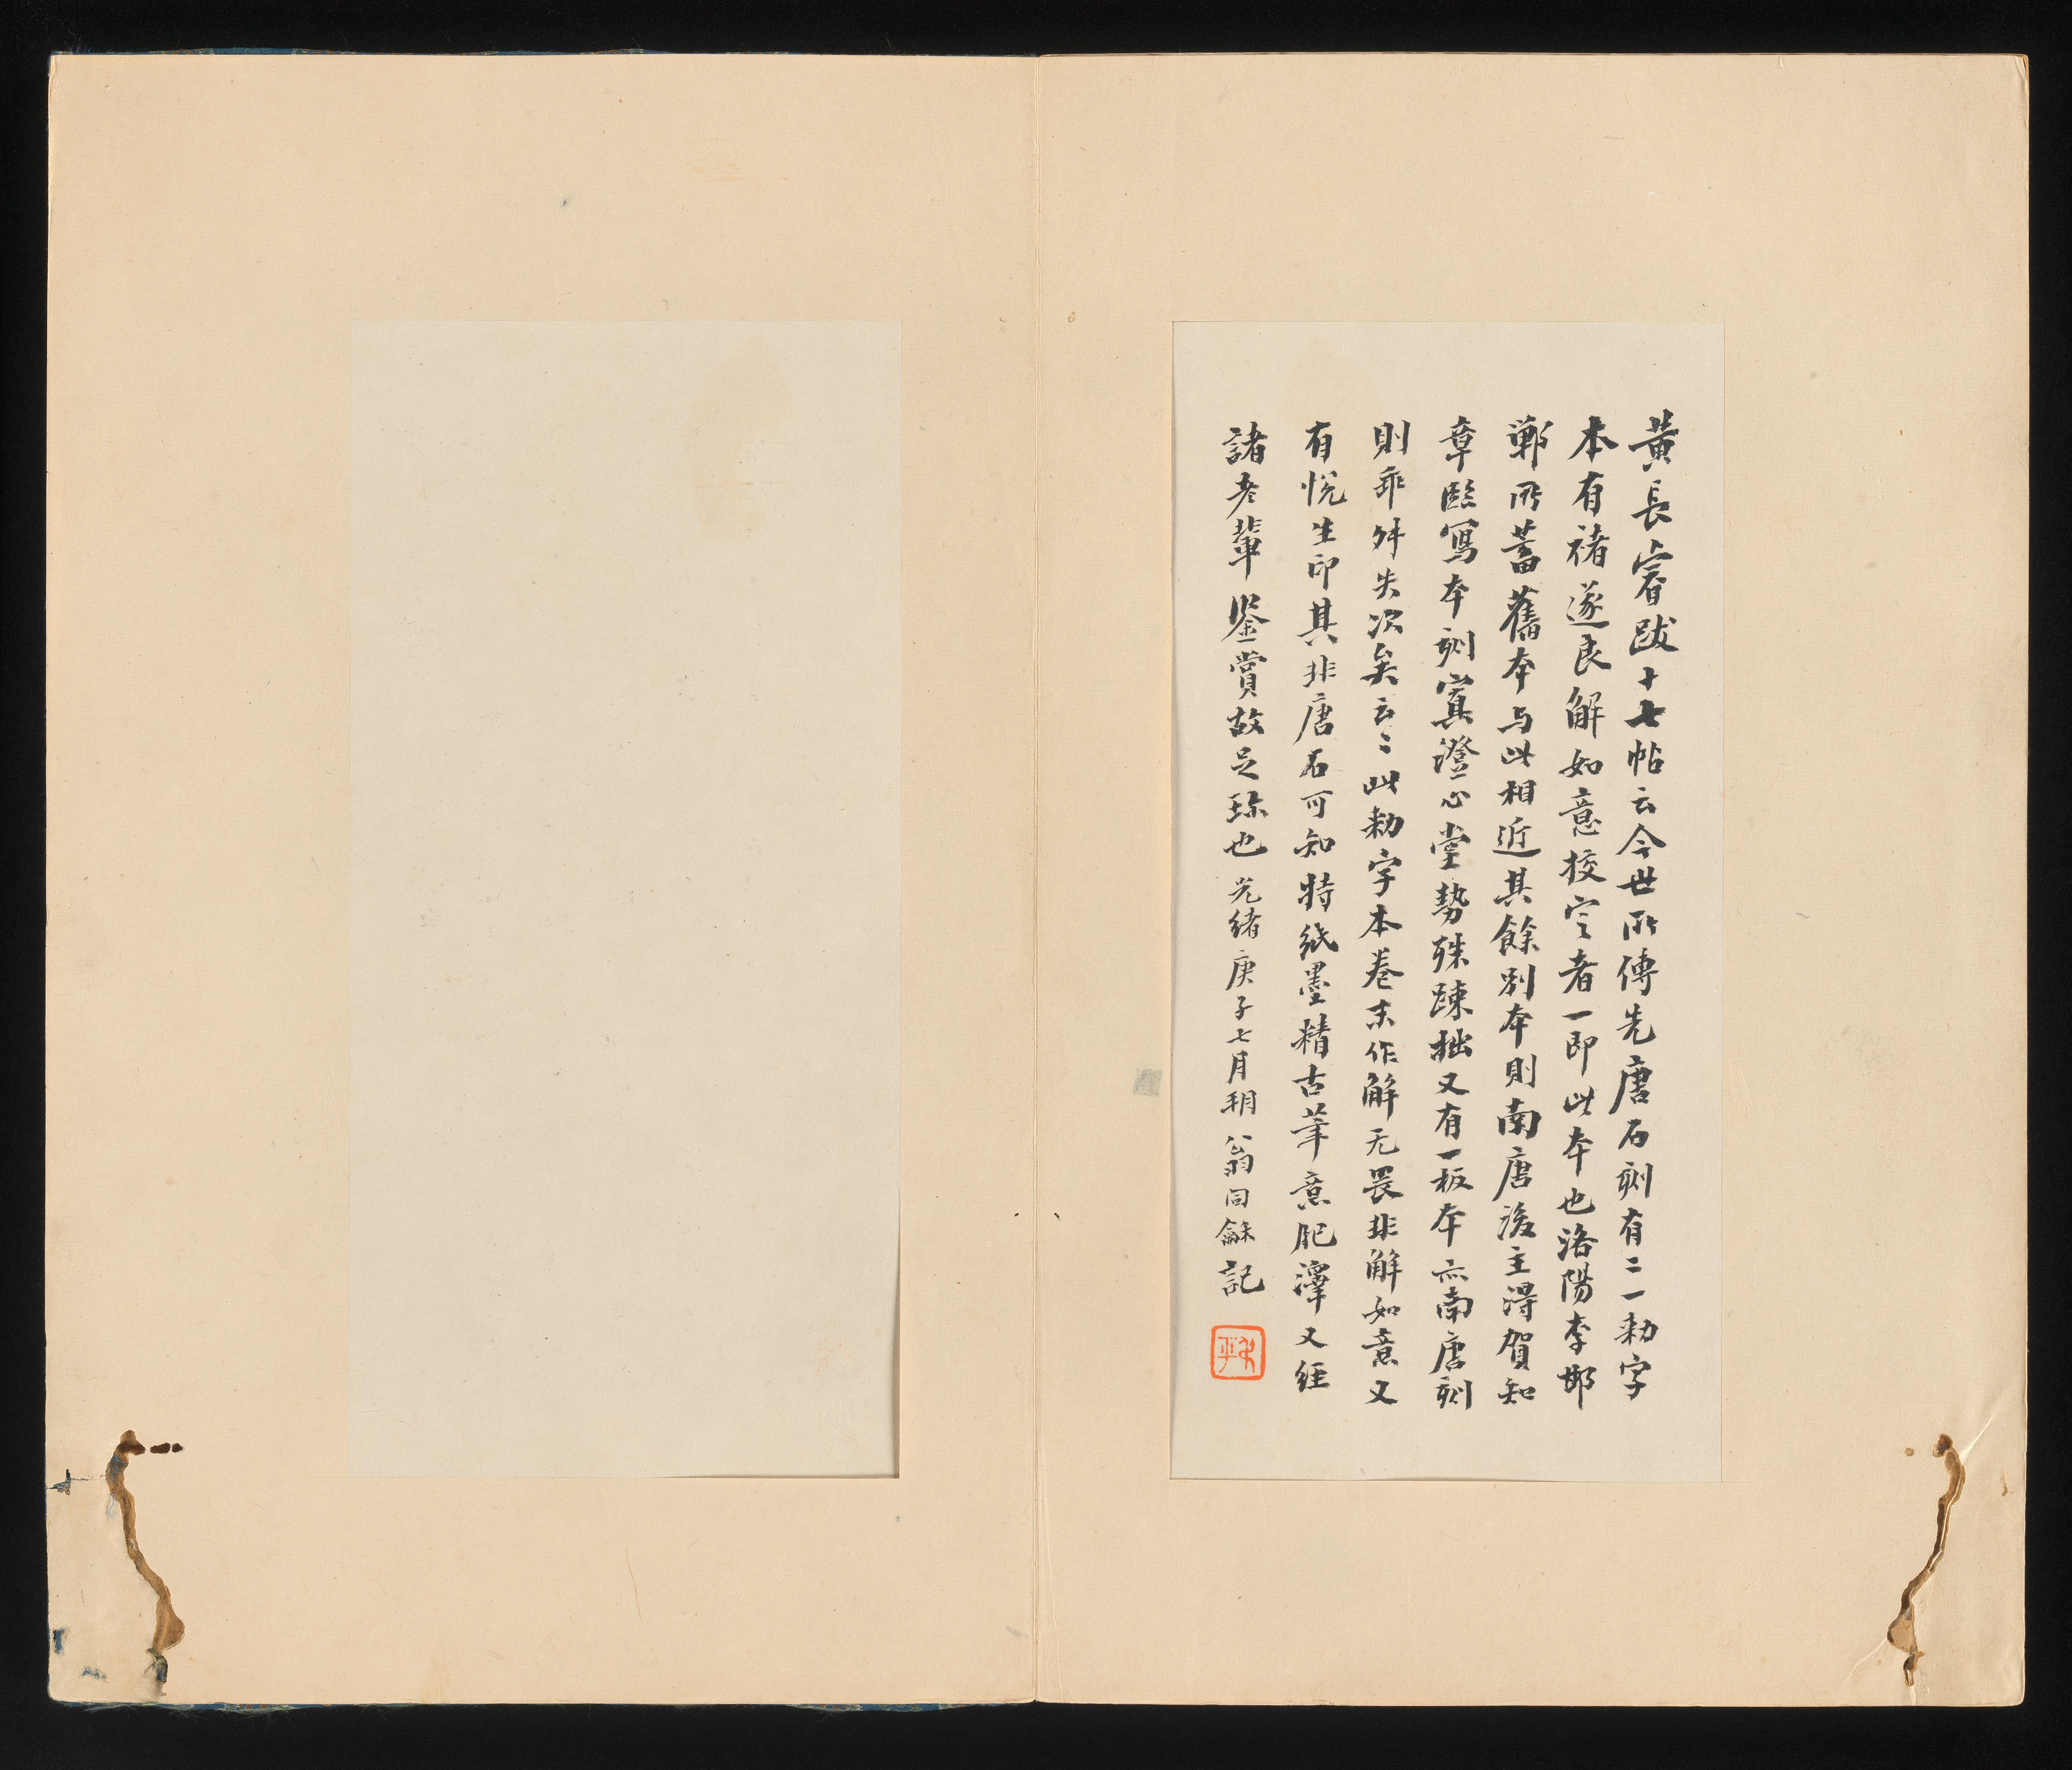 黃長睿跋十七帖云今世所傳先唐石刻有二一勑字
本有褚遂良解如意挍定者一即此本也洛陽李邯
鄲所蓄舊本与此相近其餘別本則南唐後主得賀知
章臨寫本刻寘澄心堂勢殊踈拙又有一板本亦南唐刻
則乖舛失次矣云〻此勑字本卷末作解无畏非解如意又
有悅生印其非唐石可知特紙墨精古筆意肥澤又經
諸老輩鑒賞故足珎也光緒庚子七月朔翁同龢記